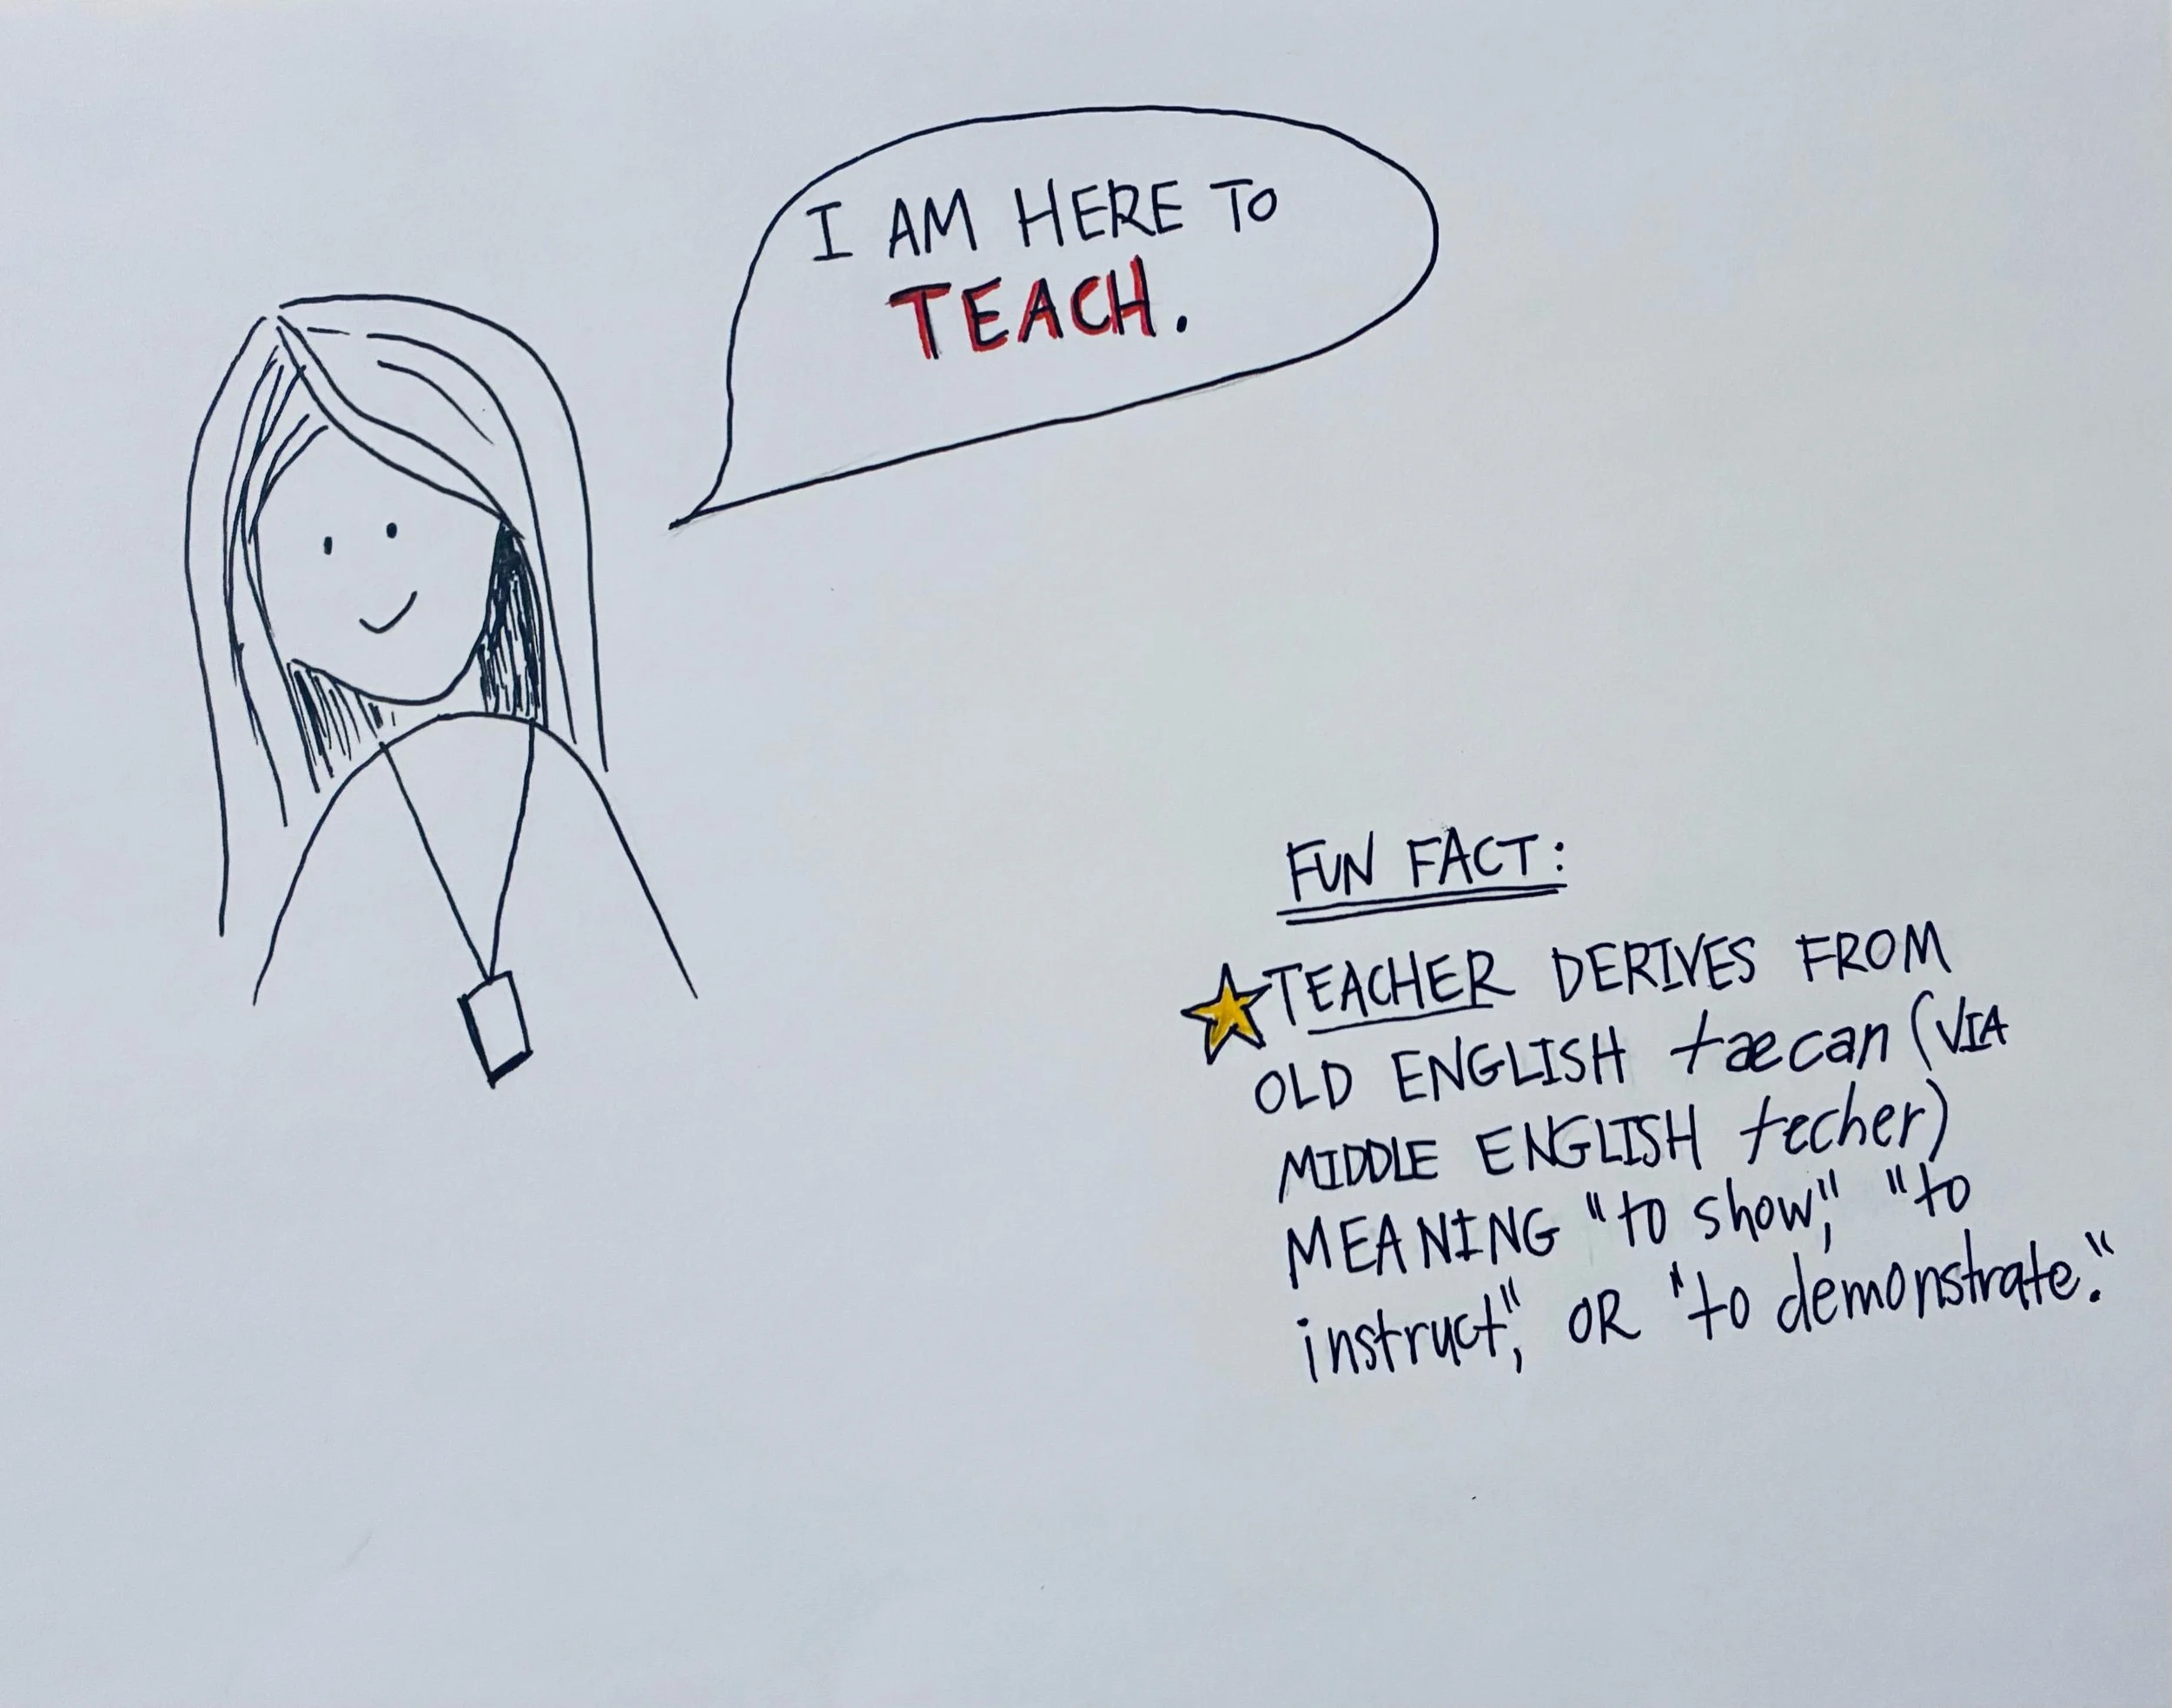 I AM HERE TO
TEACH.
FUN FACT:
TEACHER DERIVES FROM
OLD ENGLISH taecan (VIA
MIDDLE ENGLISH techer)
MEANING "to show," "to
instruct", OR "to demonstrate."